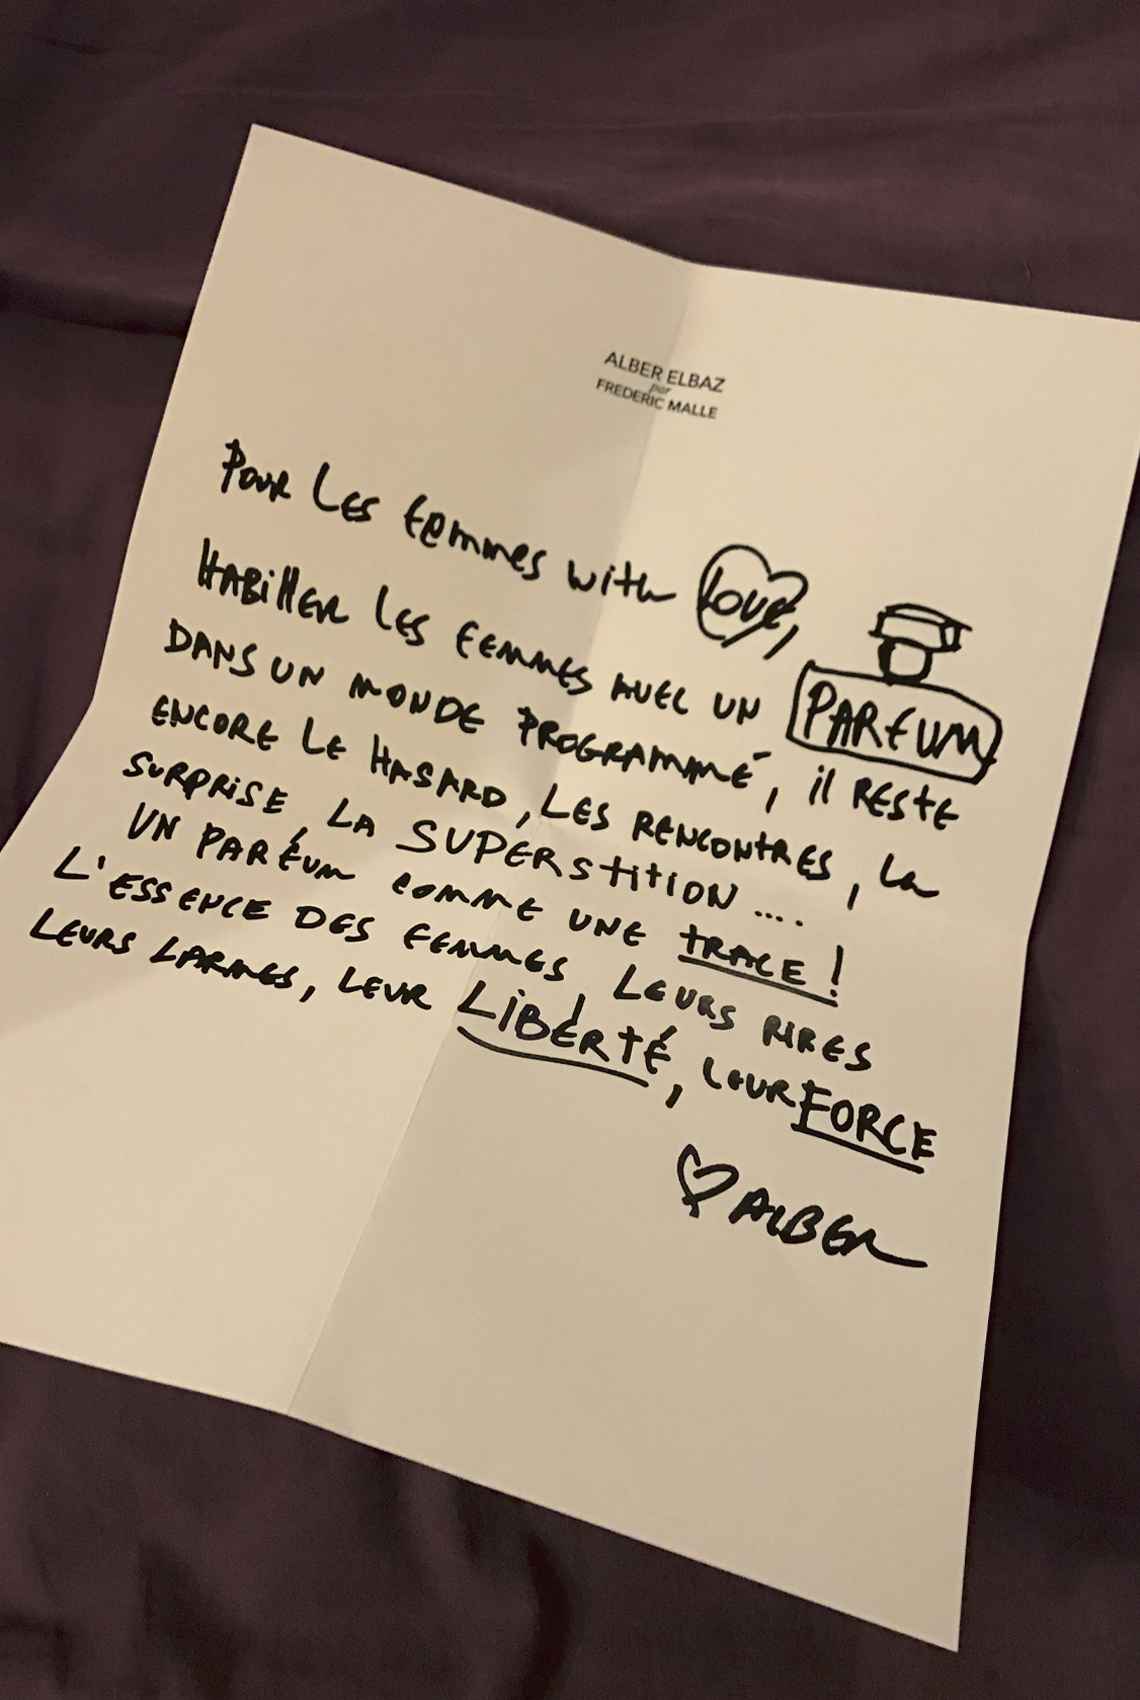 ALBER ELBAZ
par
FREDERIC MALLE
POUR LES FEMMES with love,
HABILLER LES FEMMES AVEC UN PARFUM
DANS UN MONDE PROGRAMMÉ, il RESTE
ENCORE LE HASARD, LES RENCONTRES, La
SURPRISE, LA SUPERStitiON ....
UN PARFUM COMME UNE tRACE !
L'ESSENCE DES FEMMES, LEURS RIRES
LEURS LARMES, LEUR LiBERTÉ, LEUR FORCE
ALBER